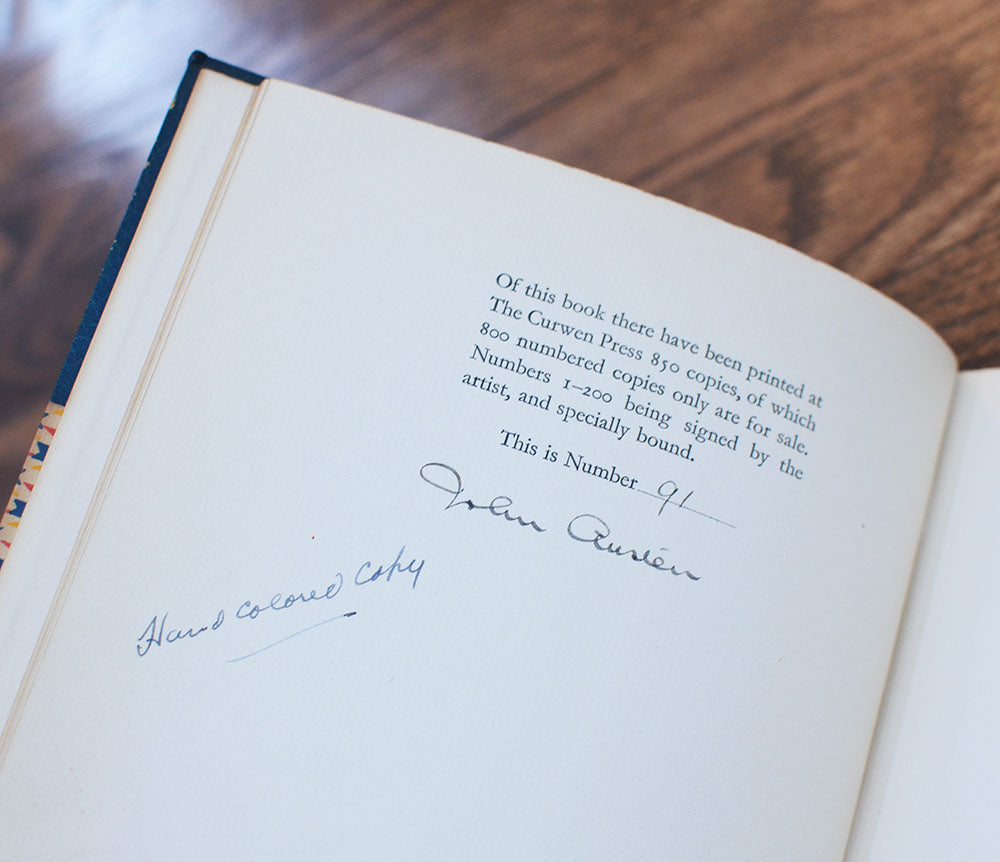 Of this book there have been printed at
The Curwen Press 850 copies, of which
800 numbered copies only are for sale.
Numbers 1–200 being signed by the
artist, and specially bound.
This is Number 91
John Austen
Hand colored copy